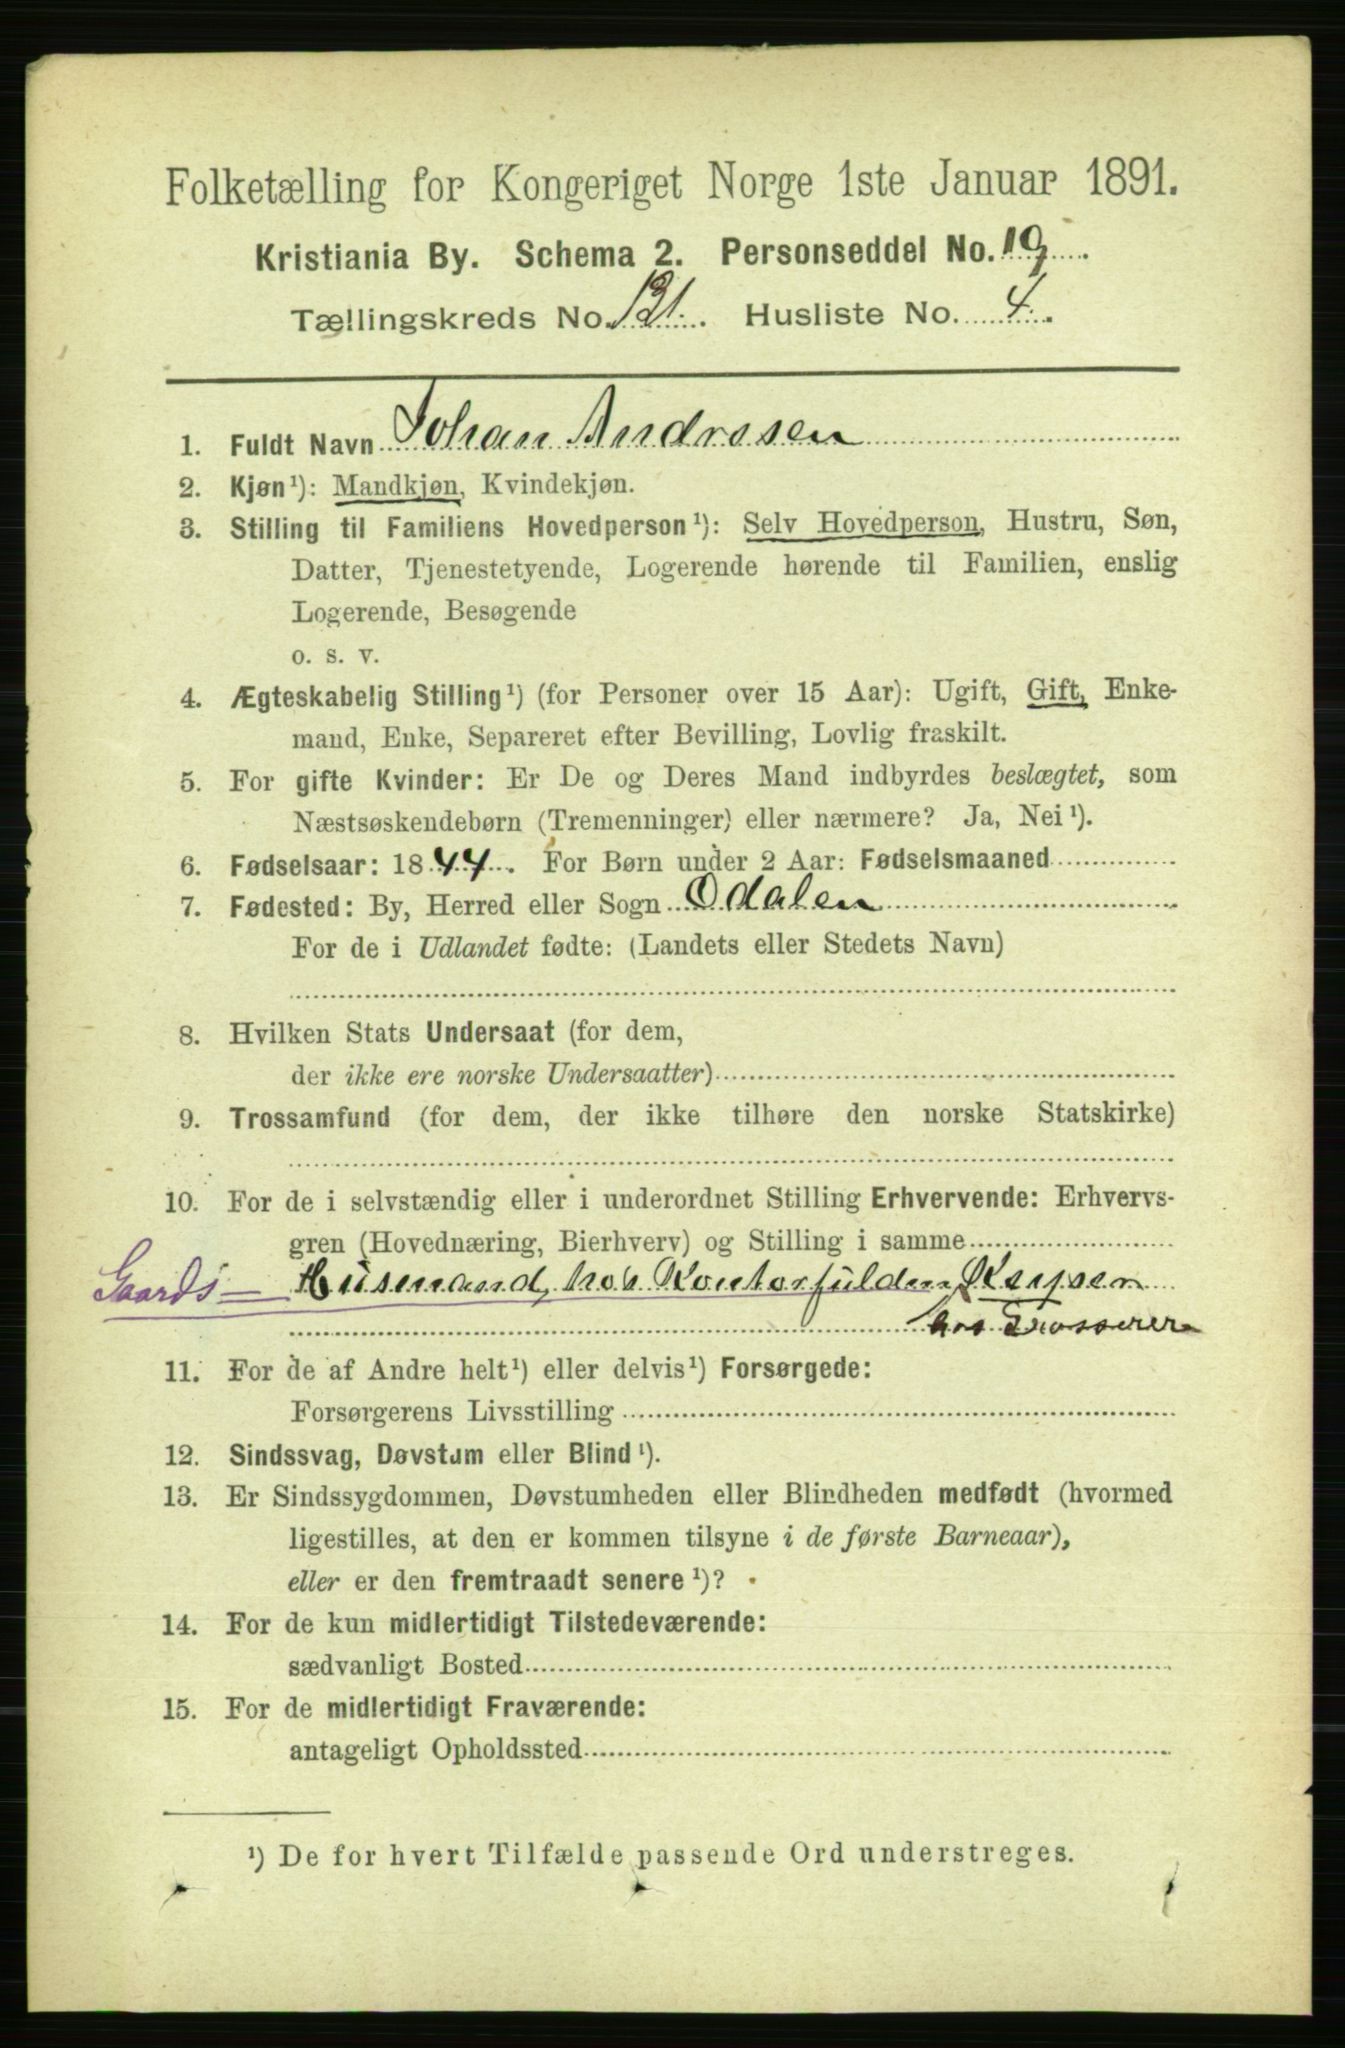 Folketælling for Kongeriget Norge 1ste Januar 1891.
Kristiania By. Schema 2. Personseddel No. 19.
Tællingskreds No. 131. Husliste No. 4.
1. Fuldt Navn Johan Andresen
2. Kjøn¹): Mandkjøn, Kvindekjøn.
3. Stilling til Familiens Hovedperson¹): Selv Hovedperson, Hustru, Søn,
Datter, Tjenestetyende, Logerende hørende til Familien, enslig
Logerende, Besøgende
o. s. v.
4. Ægteskabelig Stilling¹) (for Personer over 15 Aar): Ugift, Gift, Enke-
mand, Enke, Separeret efter Bevilling, Lovlig fraskilt.
5. For gifte Kvinder: Er De og Deres Mand indbyrdes beslægtet, som
Næstsøskendebørn (Tremenninger) eller nærmere? Ja, Nei¹).
6. Fødselsaar: 1844. For Børn under 2 Aar: Fødselsmaaned
7. Fødested: By, Herred eller Sogn Odalen
For de i Udlandet fødte: (Landets eller Stedets Navn)
8. Hvilken Stats Undersaat (for dem,
der ikke ere norske Undersaatter)
9. Trossamfund (for dem, der ikke tilhøre den norske Statskirke)
10. For de i selvstændig eller i underordnet Stilling Erhvervende: Erhvervs-
gren (Hovednæring, Bierhverv) og Stilling i samme
Gaards- Husmand, hos Keyser
hos Grosserer
11. For de af Andre helt¹) eller delvis¹) Forsørgede:
Forsørgerens Livsstilling
12. Sindssvag, Døvstum eller Blind¹).
13. Er Sindssygdommen, Døvstumheden eller Blindheden medfødt (hvormed
ligestilles, at den er kommen tilsyne i de første Barneaar),
eller er den fremtraadt senere¹)?
14. For de kun midlertidigt Tilstedeværende:
sædvanligt Bosted
15. For de midlertidigt Fraværende:
antageligt Opholdssted
¹) De for hvert Tilfælde passende Ord understreges.